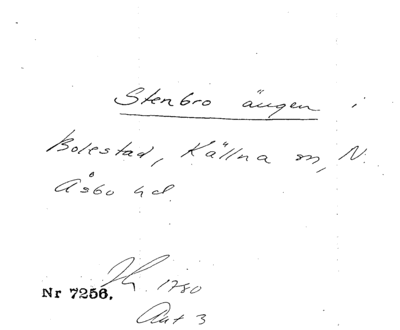 Stenbro ängen i
Bolestad, Källna sn, N.
Åsbo hd.
1780
Nr 7256.
Akt 3